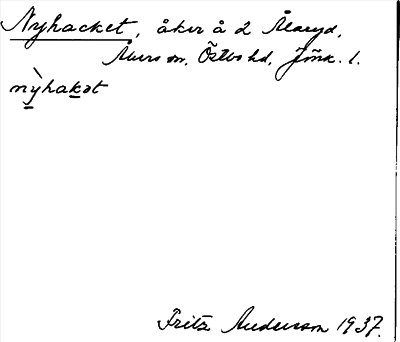 Nyhacket, åker å 2 Ålaryd,
Åkers sn. Östbo hd, Jönk. l.
nỳhakət
Fritz Anderson 1937.